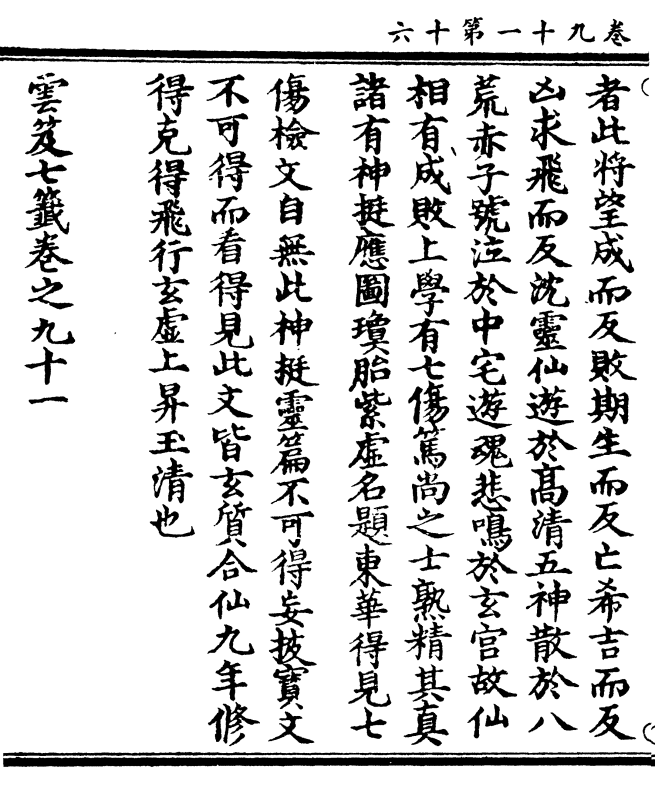 卷九十一第十六
者此將望成而反敗期生而反亡希吉而反
凶求飛而反沈靈仙遊於高清五神散於八
荒赤子號泣於中宅遊魂悲鳴於玄宮故仙
相有成敗上學有七傷篤尚之士熟精其真
諸有神挺應圖瓊胎紫虛名題東華得見七
傷檢文自無此神挺靈篇不可得妄披寶文
不可得而看得見此文皆玄質合仙九年修
得克得飛行玄虛上昇玉清也
雲笈七籤卷之九十一